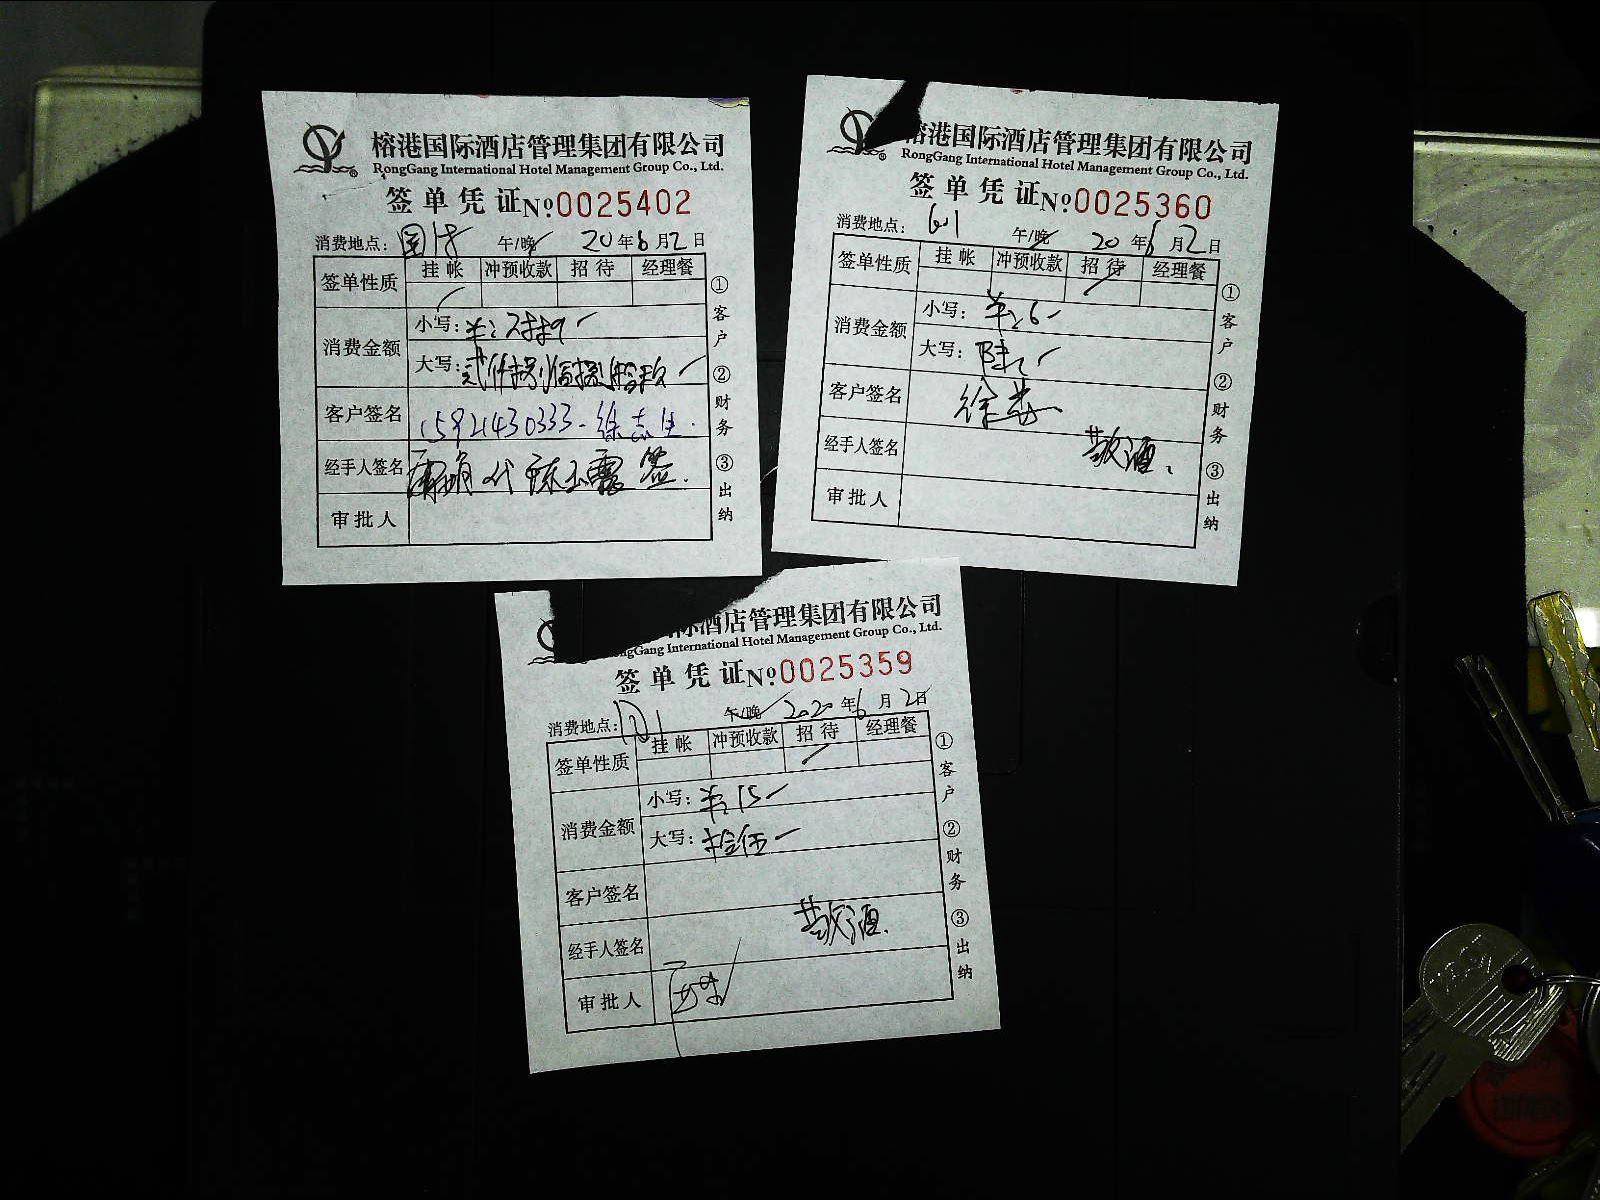 榕港国际酒店管理集团有限公司
RongGang International Hotel Management Group Co., Ltd.
签单凭证 №0025402
消费地点: 午/晚 20年6月2日
签单性质 挂帐 冲预收款 招待 经理餐
消费金额 小写:
大写:
客户签名 15921430333-徐志
经手人签名 代 签.
审批人
①客户 ②财务 ③出纳
榕港国际酒店管理集团有限公司
RongGang International Hotel Management Group Co., Ltd.
签单凭证 №0025360
消费地点: 601 午/晚 20年6月2日
签单性质 挂帐 冲预收款 招待 经理餐
消费金额 小写: 6
大写:
客户签名 徐
经手人签名 敬酒、
审批人
①客户 ②财务 ③出纳
际酒店管理集团有限公司
ngGang International Hotel Management Group Co., Ltd.
签单凭证 №0025359
消费地点: 午/晚 2020年6月2日
签单性质 挂帐 冲预收款 招待 经理餐
消费金额 小写: 15
大写: 拾伍
客户签名
经手人签名 敬酒.
审批人
①客户 ②财务 ③出纳